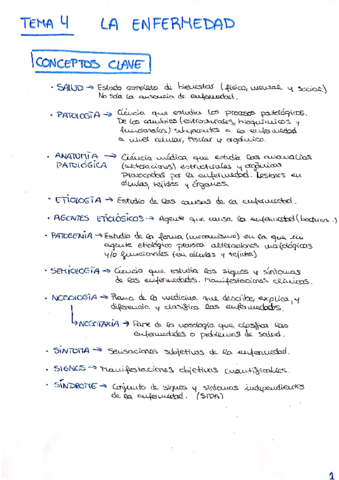 TEMA 4 LA ENFERMEDAD
CONCEPTOS CLAVE
· SALUD → Estado completo de bienestar (físico, mental y social)
No solo la ausencia de enfermedad.
· PATOLOGÍA → Ciencia que estudia los procesos patológicos.
De los cambios (estructurales, bioquímicos y
funcionales) subyacentes a la enfermedad
a nivel celular, tisular y orgánico.
· ANATOMÍA → Ciencia médica que estudia las anomalías
PATOLÓGICA (alteraciones) estructurales y orgánicas
Provocadas por la enfermedad. Lesiones en
células, tejidos y órganos.
· ETIOLOGÍA → Estudio de las causas de la enfermedad.
· AGENTES ETIOLÓGICOS → Agente que causa la enfermedad (bacterias..)
· PATOGENIA → Estudio de la forma (mecanismo) en la que un
agente etiológico provoca alteraciones morfológicas
y/o funcionales (en células y tejidos)
· SEMIOLOGÍA → Ciencia que estudia los signos y síntomas
de las enfermedades. Manifestaciones clínicas.
· NOSOLOGÍA → Rama de la medicina que describe, explica, y
diferencia y clasifica las enfermedades.
↳ NOSOTAXIA → Parte de la nosología que clasifica las
enfermedades o problemas de salud.
· SÍNTOMA → Sensaciones subjetivas de la enfermedad.
· SIGNOS → Manifestaciones objetivas cuantificables.
· SÍNDROME → Conjunto de signos y síntomas independientes
de la enfermedad. (SIDA)
1